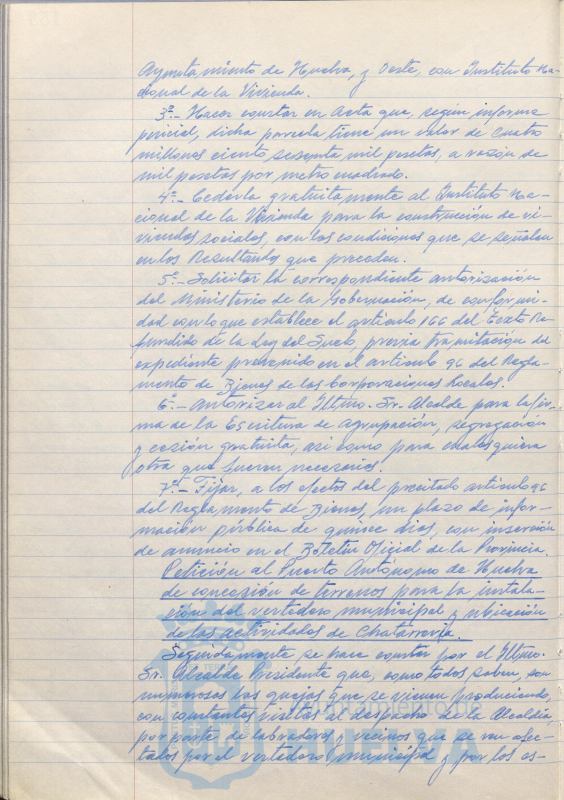 Ayuntamiento de Huelva, y Oeste, con Instituto Na-
cional de la Vivienda.
3º.- Hacer constar en Acta que, según informe
pericial, dicha parcela tiene un valor de cuatro
millones ciento sesenta mil pesetas, a razón de
mil pesetas por metro cuadrado.
4º.- Cederla gratuitamente al Instituto Na-
cional de la Vivienda para la construcción de vi-
viendas sociales, con las condiciones que se señalan
en los Resultandos que preceden.
5º.- Solicitar la correspondiente autorización
del Ministerio de la Gobernación, de conformi-
dad con lo que establece el artículo 166 del Texto Re-
fundido de la Ley del Suelo, previa tramitación del
expediente prevenido en el artículo 96 del Regla-
mento de Bienes de las Corporaciones Locales.
6º.- Autorizar al Iltmo. Sr. Alcalde para la fir-
ma de la Escritura de agrupación, segregación
y cesión gratuita, así como para cualesquiera
otra que fueren necesarias.
7º.- Fijar, a los efectos del precitado artículo 96
del Reglamento de Bienes, un plazo de infor-
mación pública de quince días, con inserción
de anuncio en el Boletín Oficial de la Provincia.
Petición al Puerto Autónomo de Huelva
de concesión de terrenos para la instala-
ción del vertedero municipal y ubicación
de las actividades de Chatarrería.
Seguidamente se hace constar por el Iltmo.
Sr. Alcalde Presidente que, como todos saben, son
numerosas las quejas que se vienen produciendo,
con constantes visitas al despacho de la Alcaldía,
por parte de labradores y vecinos que se ven afec-
tados por el vertedero municipal y por los as-
Ayuntamiento de
HUELVA